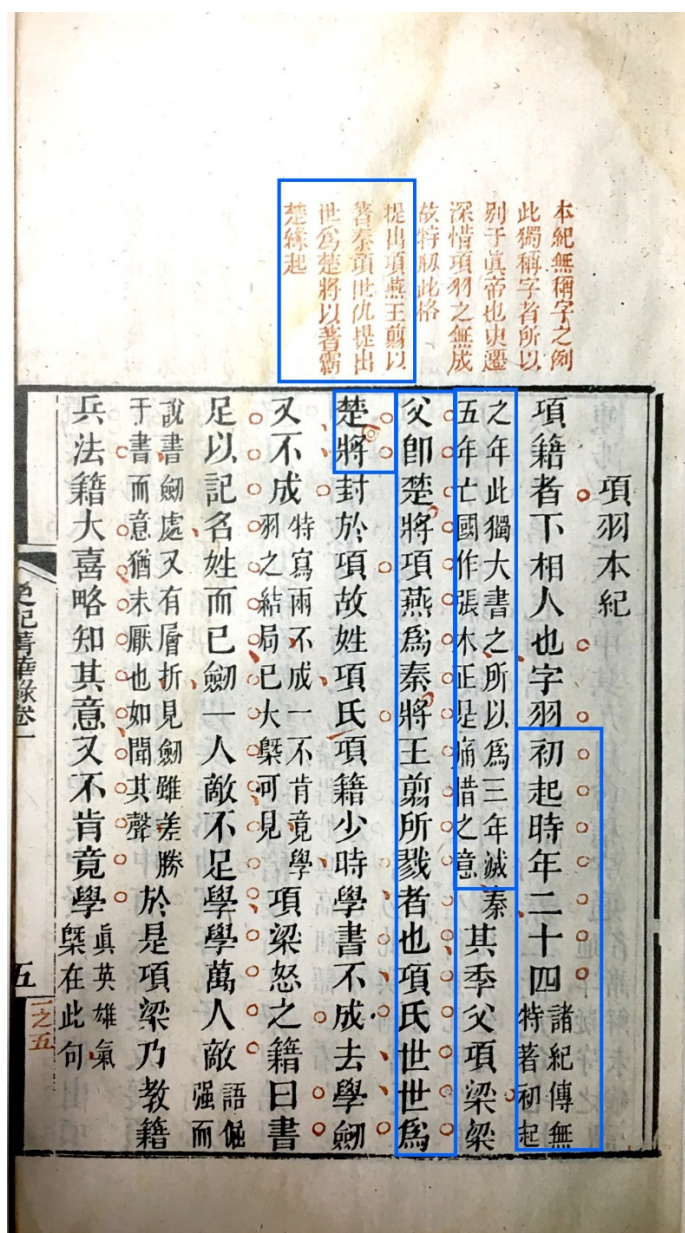 本紀無稱字之例
此獨稱字者所以
別于眞帝也史遷
深惜項羽之無成
故特刱此格
提出項燕王翦以
著秦項世仇提出
世爲楚將以著霸
楚緣起
項羽本紀
項籍者下相人也字羽初起時年二十四諸紀傳無特著初起
之年此獨大書之所以爲三年滅秦五年亡國作張本正是痛惜之意其季父項梁梁
父卽楚將項燕爲秦將王翦所戮者也項氏世世爲
楚將封於項故姓項氏項籍少時學書不成去學劒
又不成特寫兩不成一不肯竟學羽之結局已大槩可見項梁怒之籍曰書
足以記名姓而已劒一人敵不足學學萬人敵語倔强而
說書劒處又有層折見劒雖差勝于書而意猶未厭也如聞其聲於是項梁乃教籍
兵法籍大喜略知其意又不肯竟學眞英雄氣槩在此句
史記菁華錄卷一
五
一之五